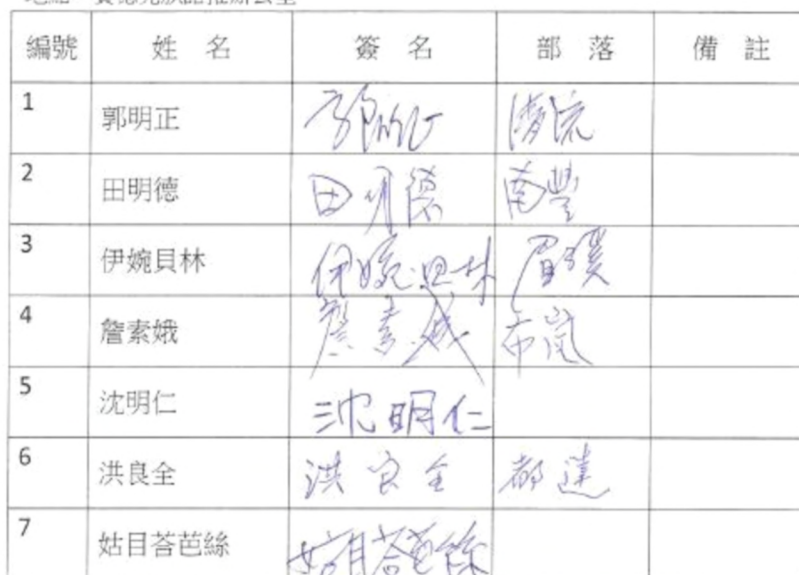 編號 姓名 簽名 部落 備註
1 郭明正 郭明正 清流
2 田明德 田明德 南豐
3 伊婉貝林 伊婉·貝林 眉溪
4 詹素娥 詹素娥
5 沈明仁 沈明仁
6 洪良全 洪良全 都達
7 姑目荅芭絲 姑目荅芭絲